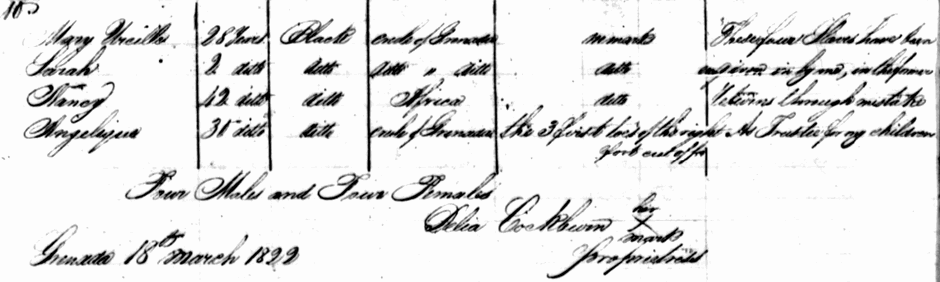 Mary Ursilla 28 Years Black creole of Grenada no mark These four Slaves have been
Sarah 2 ditto ditto ditto " ditto ditto given in by me, in the former
Nancy 42 ditto ditto Africa ditto Returns through mistake
Angelique 35 ditto ditto creole of Grenada the 3 first toes of the right As Trustee for my children
foot cut off
Four Males and Four Females
Delia Cockburn her
X
mark
Grenada 18th March 1822 Proprietress